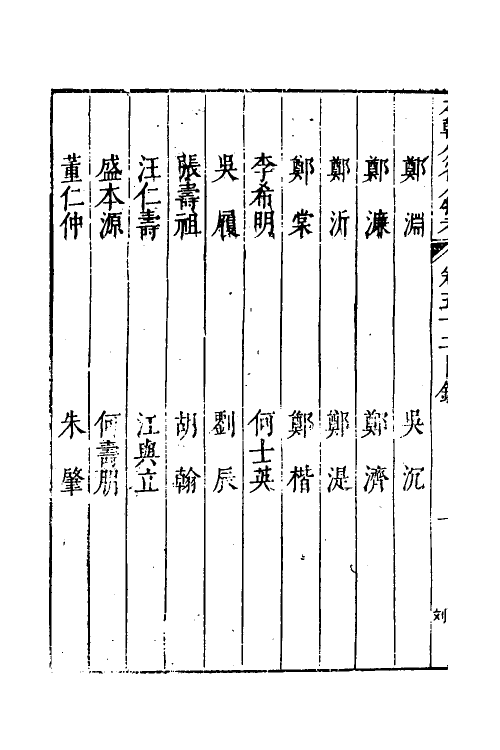 鄭淵　吳沉
鄭濂　鄭濟
鄭沂　鄭湜
鄭棠　鄭楷
李希明　何士英
吳履　劉辰
張壽祖　胡翰
汪仁壽　江與立
盛本源　何壽朋
董仁仲　朱肇